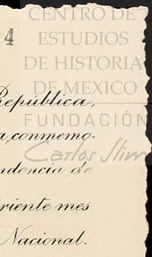 CENTRO DE
ESTUDIOS
DE HISTORIA
DE MEXICO
FUNDACIÓN
Carlos Slim
4
República,
a conmemo-
ndencia de
riente mes
Nacional.